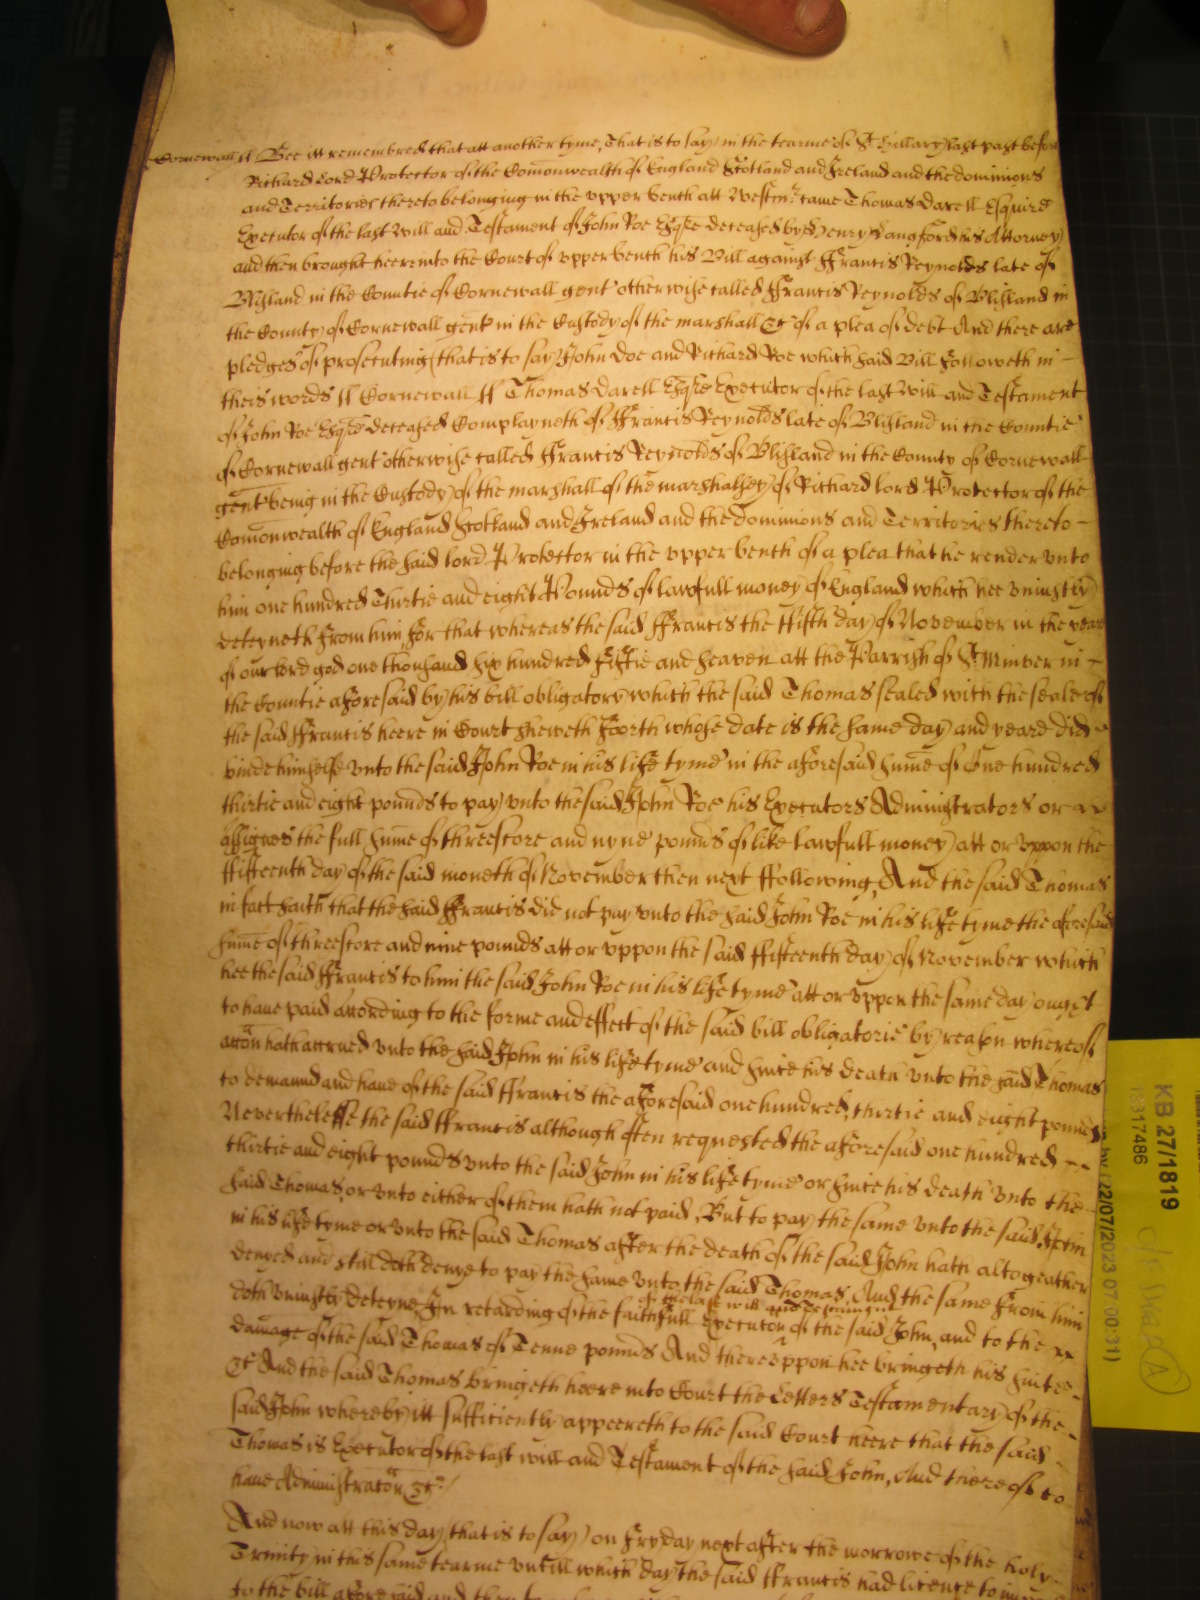 Cornewall ss Bee itt remembred that att another tyme, That is to say in the tearme of St Hillary last past before
Richard Lord Protector of the Comonwealth of England Scotland and Ireland and the dominions
and Territories thereto belonging in the upper bench att Westmr came Thomas Darell Esquire
Executor of the last Will and Testament of John Roe Esqre deceased by Henry Langford his Attorney
and then brought heere into the Court of upper bench his Bill against ffrancis Reynolds late of
Blisland in the Countie of Cornewall gent otherwise called ffrancis Reynolds of Blisland in
the County of Cornewall gent in the Custody of the marshall &c of a plea of debt And there are
pledges of prosecuting that is to say John Doe and Richard Roe which said Bill followeth in
theis words ss Cornewall ss Thomas Darell Esqre Executor of the last Will and Testament
of John Roe Esqre deceased Complayneth of ffrancis Reynolds late of Blisland in the Countie
of Cornewall gent otherwise called ffrancis Reynolds of Blisland in the County of Cornewall
gent being in the Custody of the marshall of the marshalsey of Richard lord Protector of the
Comonwealth of England Scotland and Ireland and the dominions and Territories thereto
belonging before the said lord Protector in the upper bench of a plea that he render unto
him one hundred Thirtie and eight Pounds of lawfull money of England which hee uniustly
deteyneth from him, for that whereas the said ffrancis the ffifth day of November in the yeare
of our lord god one thousand six hundred fiftie and seaven att the Parrish of St Minver in
the Countie aforesaid by his bill obligatory which the said Thomas sealed with the seale of
the said ffrancis heere in Court sheweth foorth whose date is the same day and yeare did
binde himselfe unto the said John Roe in his life tyme in the aforesaid sume of One hundred
thirtie and eight pounds to pay unto the said John Roe his Executors Administrators or
assignes the full sume of threescore and nyne pounds of like lawfull money att or uppon the
ffifteenth day of the said moneth of November then next ffollowing, And the said Thomas
in fact saith that the said ffrancis did not pay unto the said John Roe in his life tyme the aforesaid
sume of threescore and nine pounds att or uppon the said ffifteenth day of November which
hee the said ffrancis to him the said John Roe in his life tyme att or uppon the same day ought
to have paid according to the forme and effect of the said bill obligatorie by reason whereof
accon hath accrued unto the said John in his life tyme and since his death unto the said Thomas
to demaund and have of the said ffrancis the aforesaid one hundred, thirtie and eight pounds
Neverthelesse the said ffrancis although often requested the aforesaid one hundred
thirtie and eight pounds unto the said John in his life tyme or since his death unto the
said Thomas, or unto either of them hath not paid, But to pay the same unto the said John
in his life tyme or unto the said Thomas after the death of the said John hath altogeather
denyed and still doth denye to pay the same unto the said Thomas, And the same from him
doth uniustly deteyne, In retarding of the faithfull Execution of the last will and testament of the said John, and to the
damage of the said Thomas of Tenne pounds And thereuppon hee bringeth his suite
&c And the said Thomas bringeth heere into Court the Letters Testamentary of the
said John whereby itt sufficiently appeereth to the said Court heere that the said
Thomas is Executor of the last will and Testament of the said John, And thereof to
have Administracon &c
And now att this day (that is to say) on fryday next after the morrowe of the holy
Trinity in this same tearme untill which day the said ffrancis had licence to
to the bill aforesaid and then to
KB 27/1819
22/07/2023 07:00:31)
A